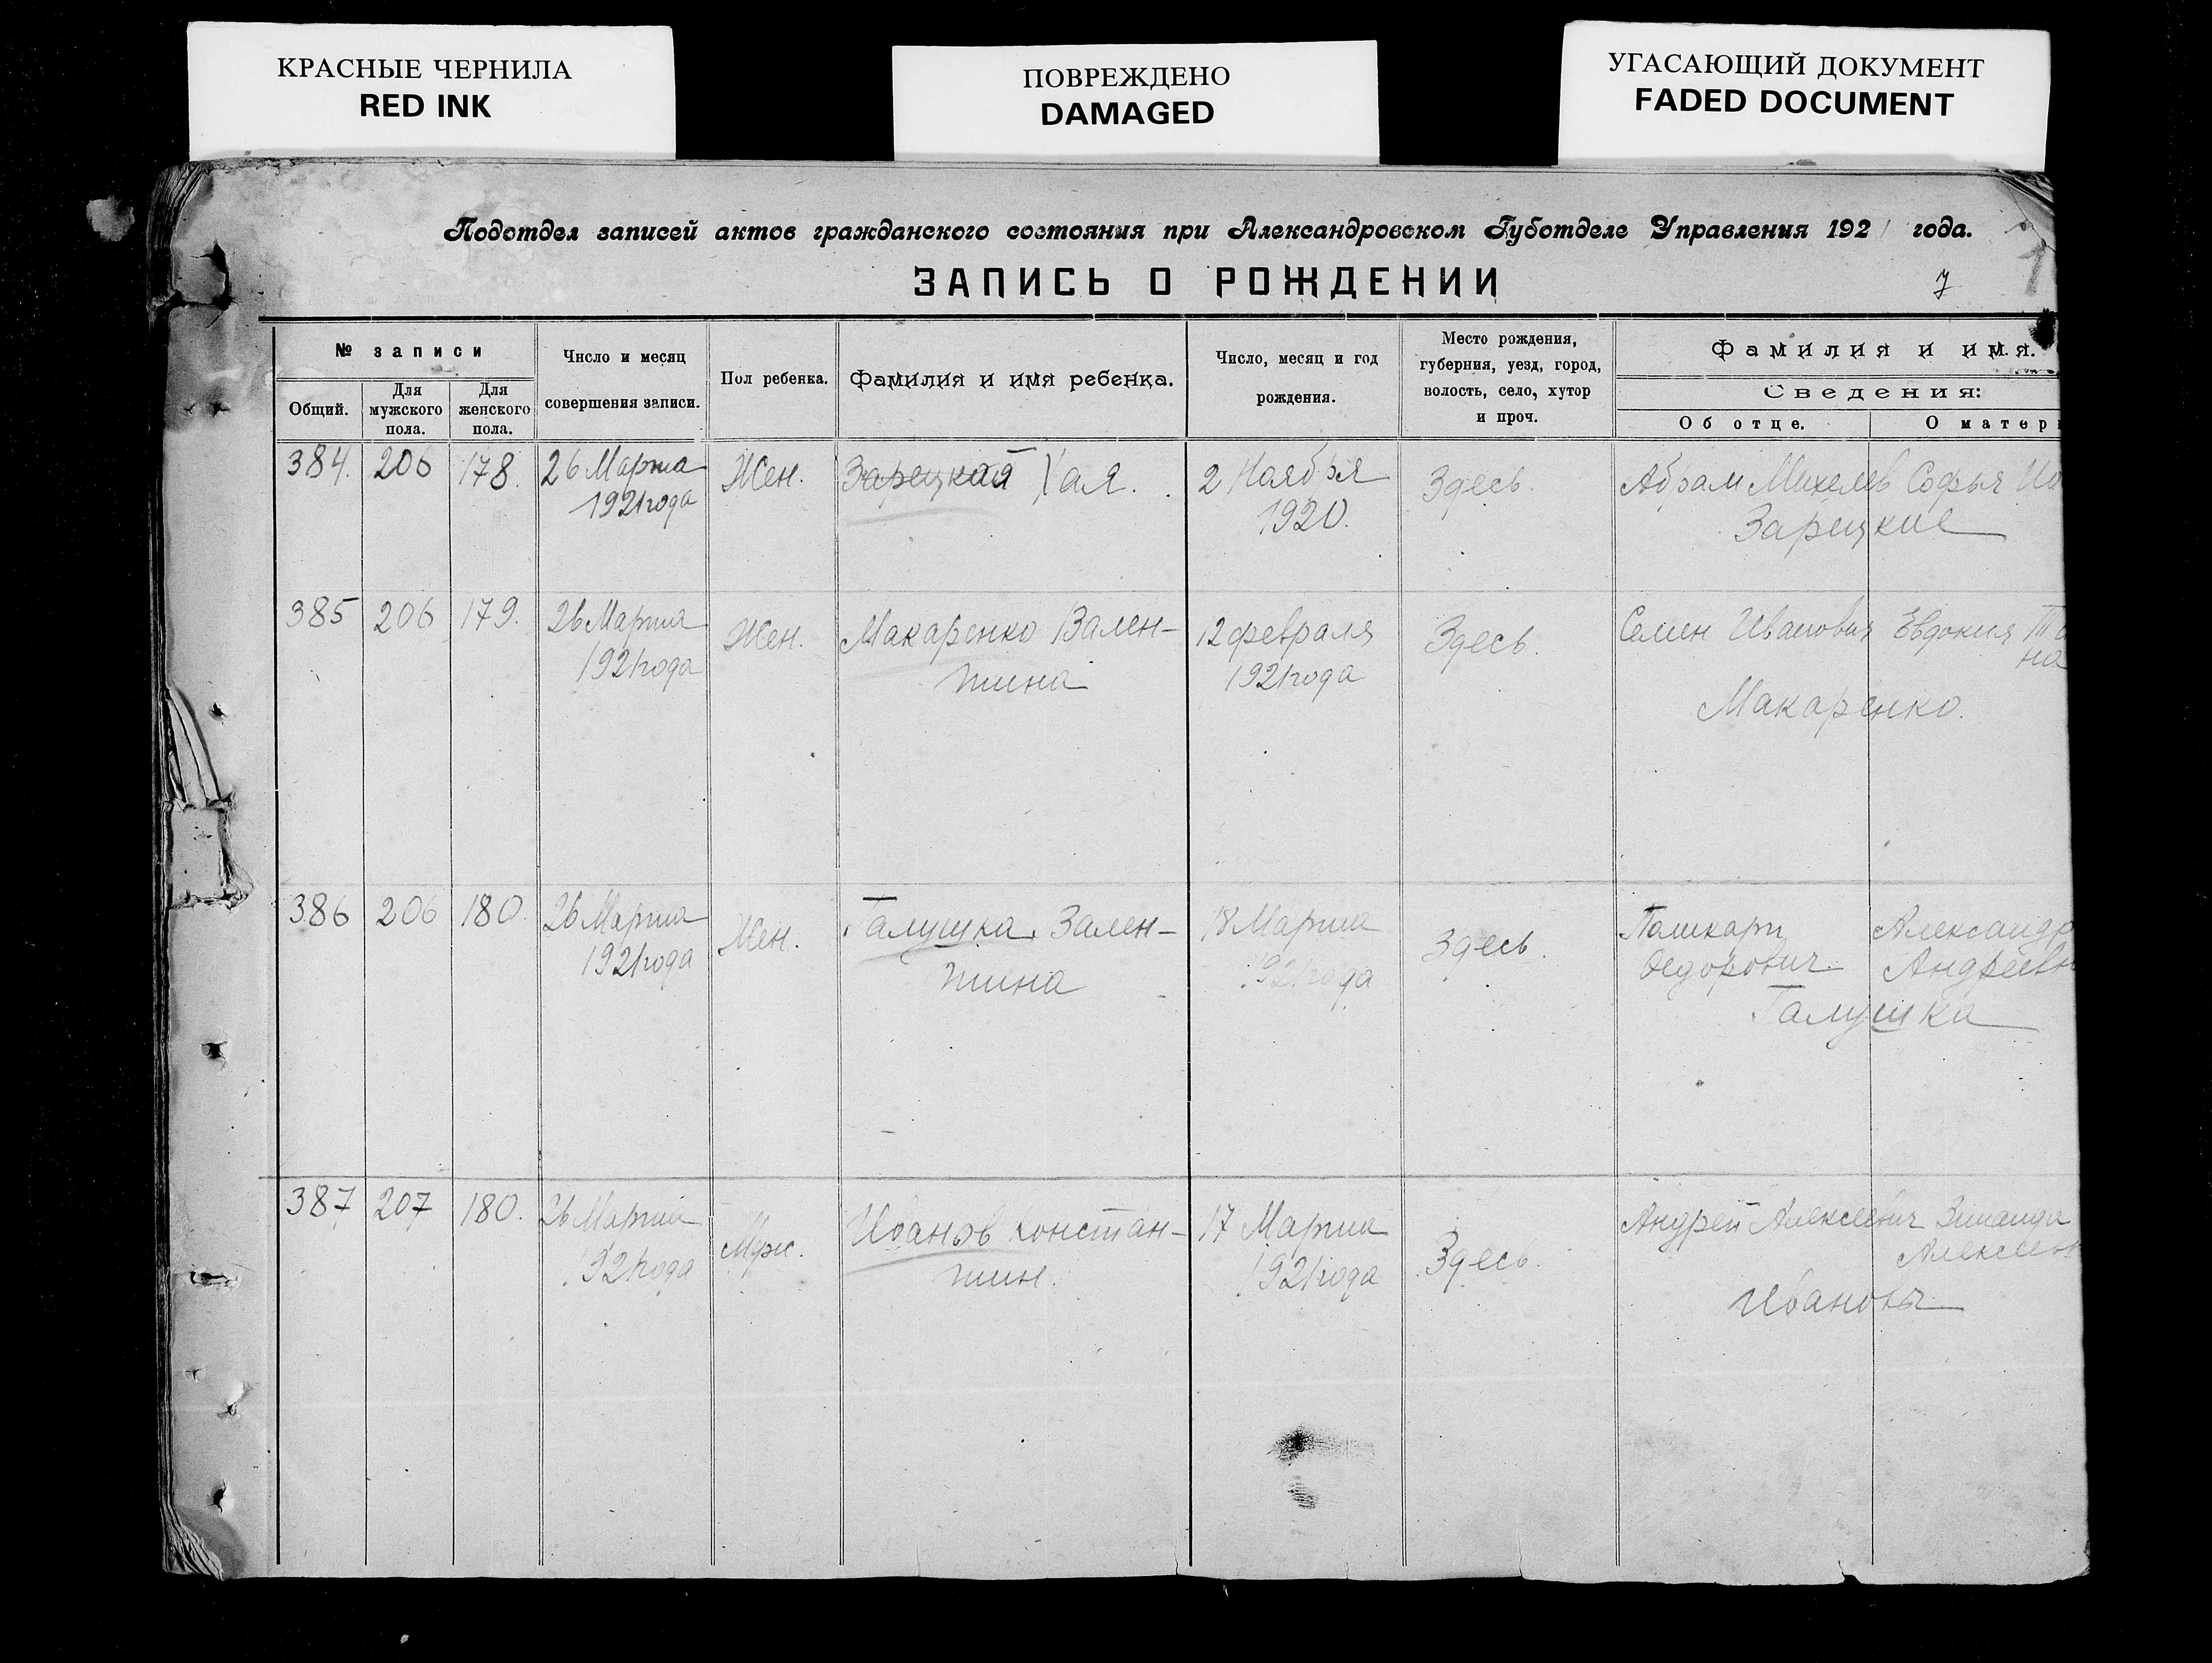 КРАСНЫЕ ЧЕРНИЛА
RED INK
ПОВРЕЖДЕНО
DAMAGED
УГАСАЮЩИЙ ДОКУМЕНТ
FADED DOCUMENT
Подотдел записей актов гражданского состояния при Александровском Губотделе Управления 1921 года.
ЗАПИСЬ О РОЖДЕНИИ
7
№ записи
Общий.
Для мужского пола.
Для женского пола.
Число и месяц совершения записи.
Пол ребенка.
Фамилия и имя ребенка.
Число, месяц и год рождения.
Место рождения, губерния, уезд, город, волость, село, хутор и проч.
Фамилия и имя.
Сведения:
Об отце.
О матери
384. 206 178. 26 Марта Жен. Зарецкая Хая. 2 Ноября Здесь. Абрам Михелев Софья
1921 года 1920. Зарецкие
385 206 179. 26 Марта Жен. Макаренко Вален- 12 февраля Здесь. Семен Иванович Евдокия
1921 года тина 1921 года на
Макаренко.
386 206 180. 26 Марта Жен. Галушка Вален- 18 Марта Здесь. Поликарп Александр
1921 года тина 1921 года Федорович Андреевн
Галушка
387 207 180. 26 Марта Муж. Иванов Констан- 17 Марта Здесь. Андрей Алексеевич Зинаида
1921 года тин. 1921 года Алексеевн
Ивановы